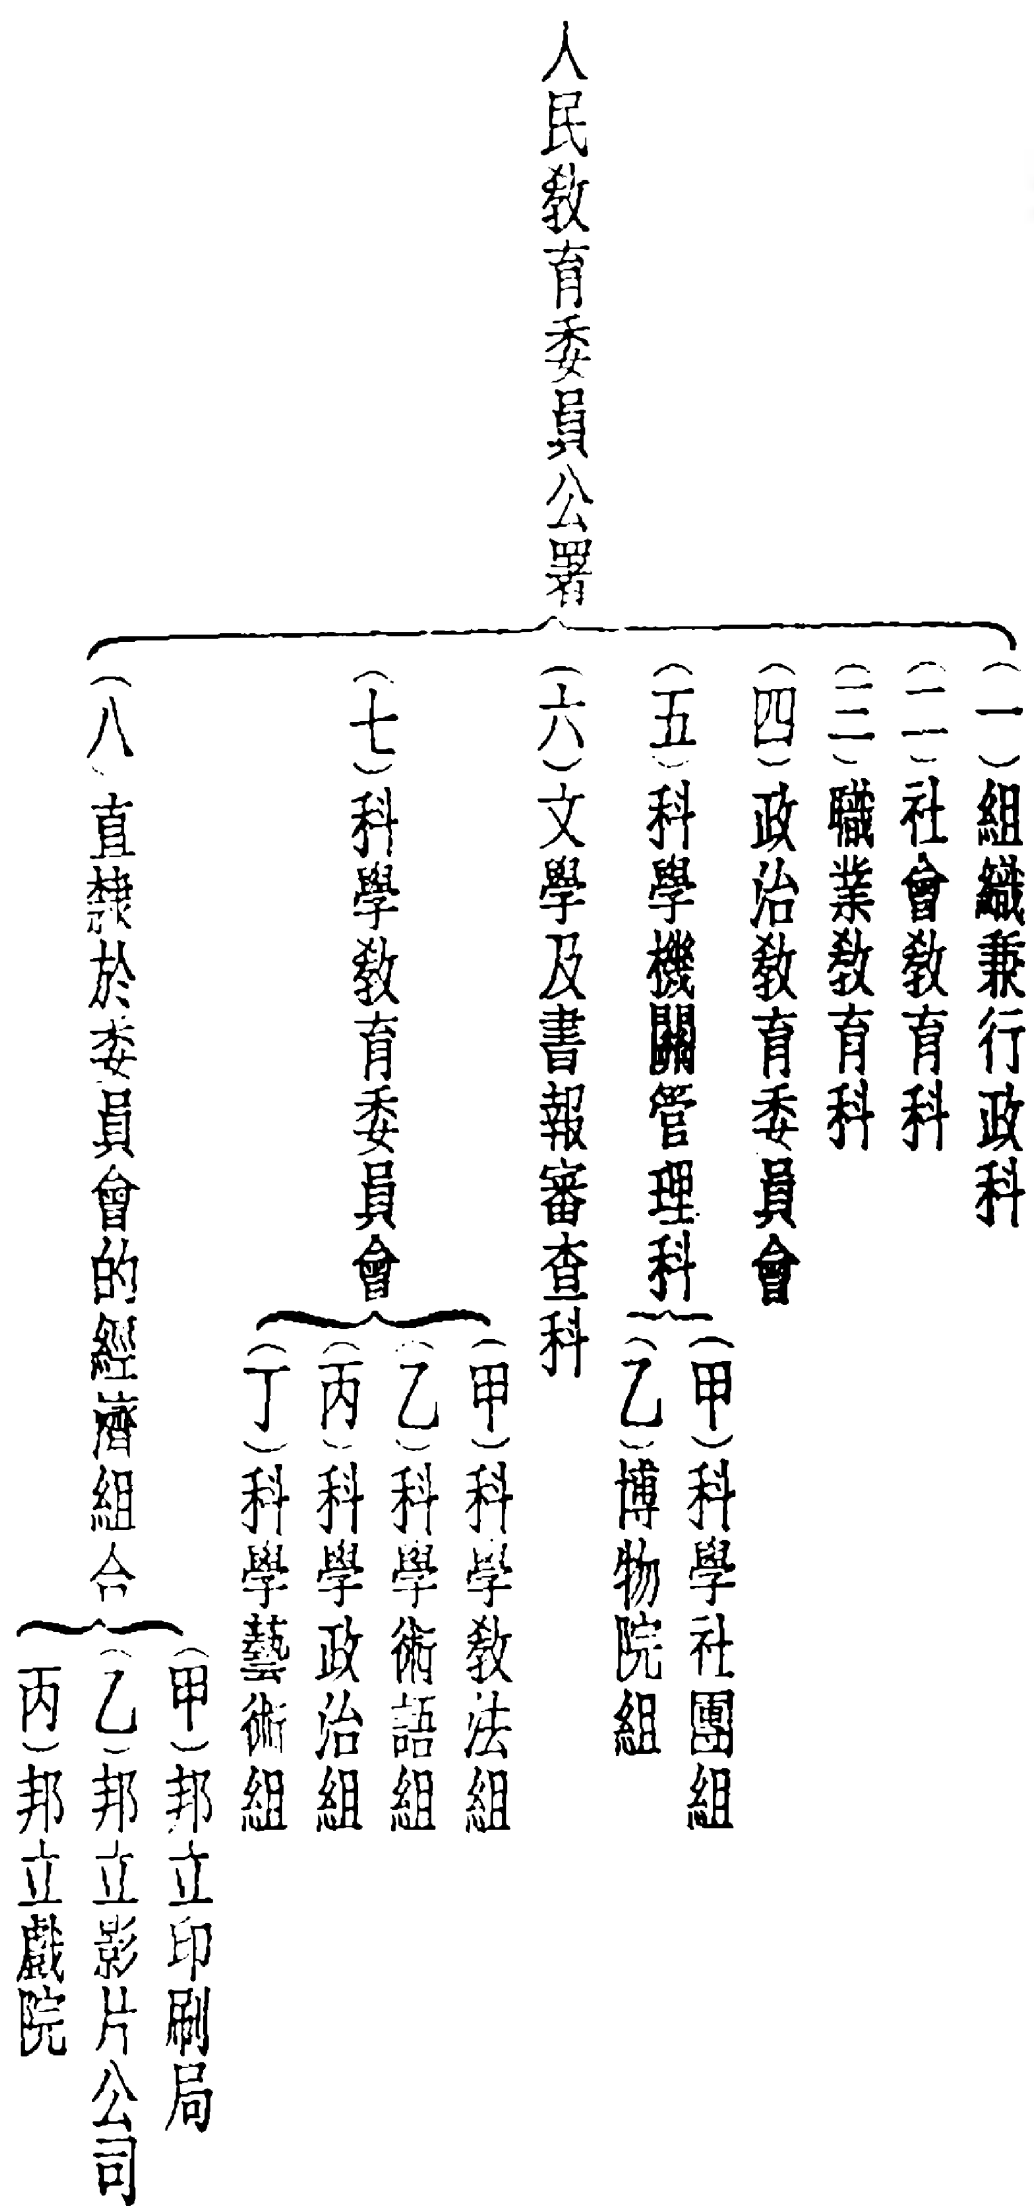 人民敎育委員公署
(一)組織兼行政科
(二)社會敎育科
(三)職業敎育科
(四)政治敎育委員會
(五)科學機關管理科
(甲)科學社團組
(乙)博物院組
(六)文學及書報審查科
(七)科學敎育委員會
(甲)科學敎法組
(乙)科學術語組
(丙)科學政治組
(丁)科學藝術組
(八)直隸於委員會的經濟組合
(甲)邦立印刷局
(乙)邦立影片公司
(丙)邦立戲院